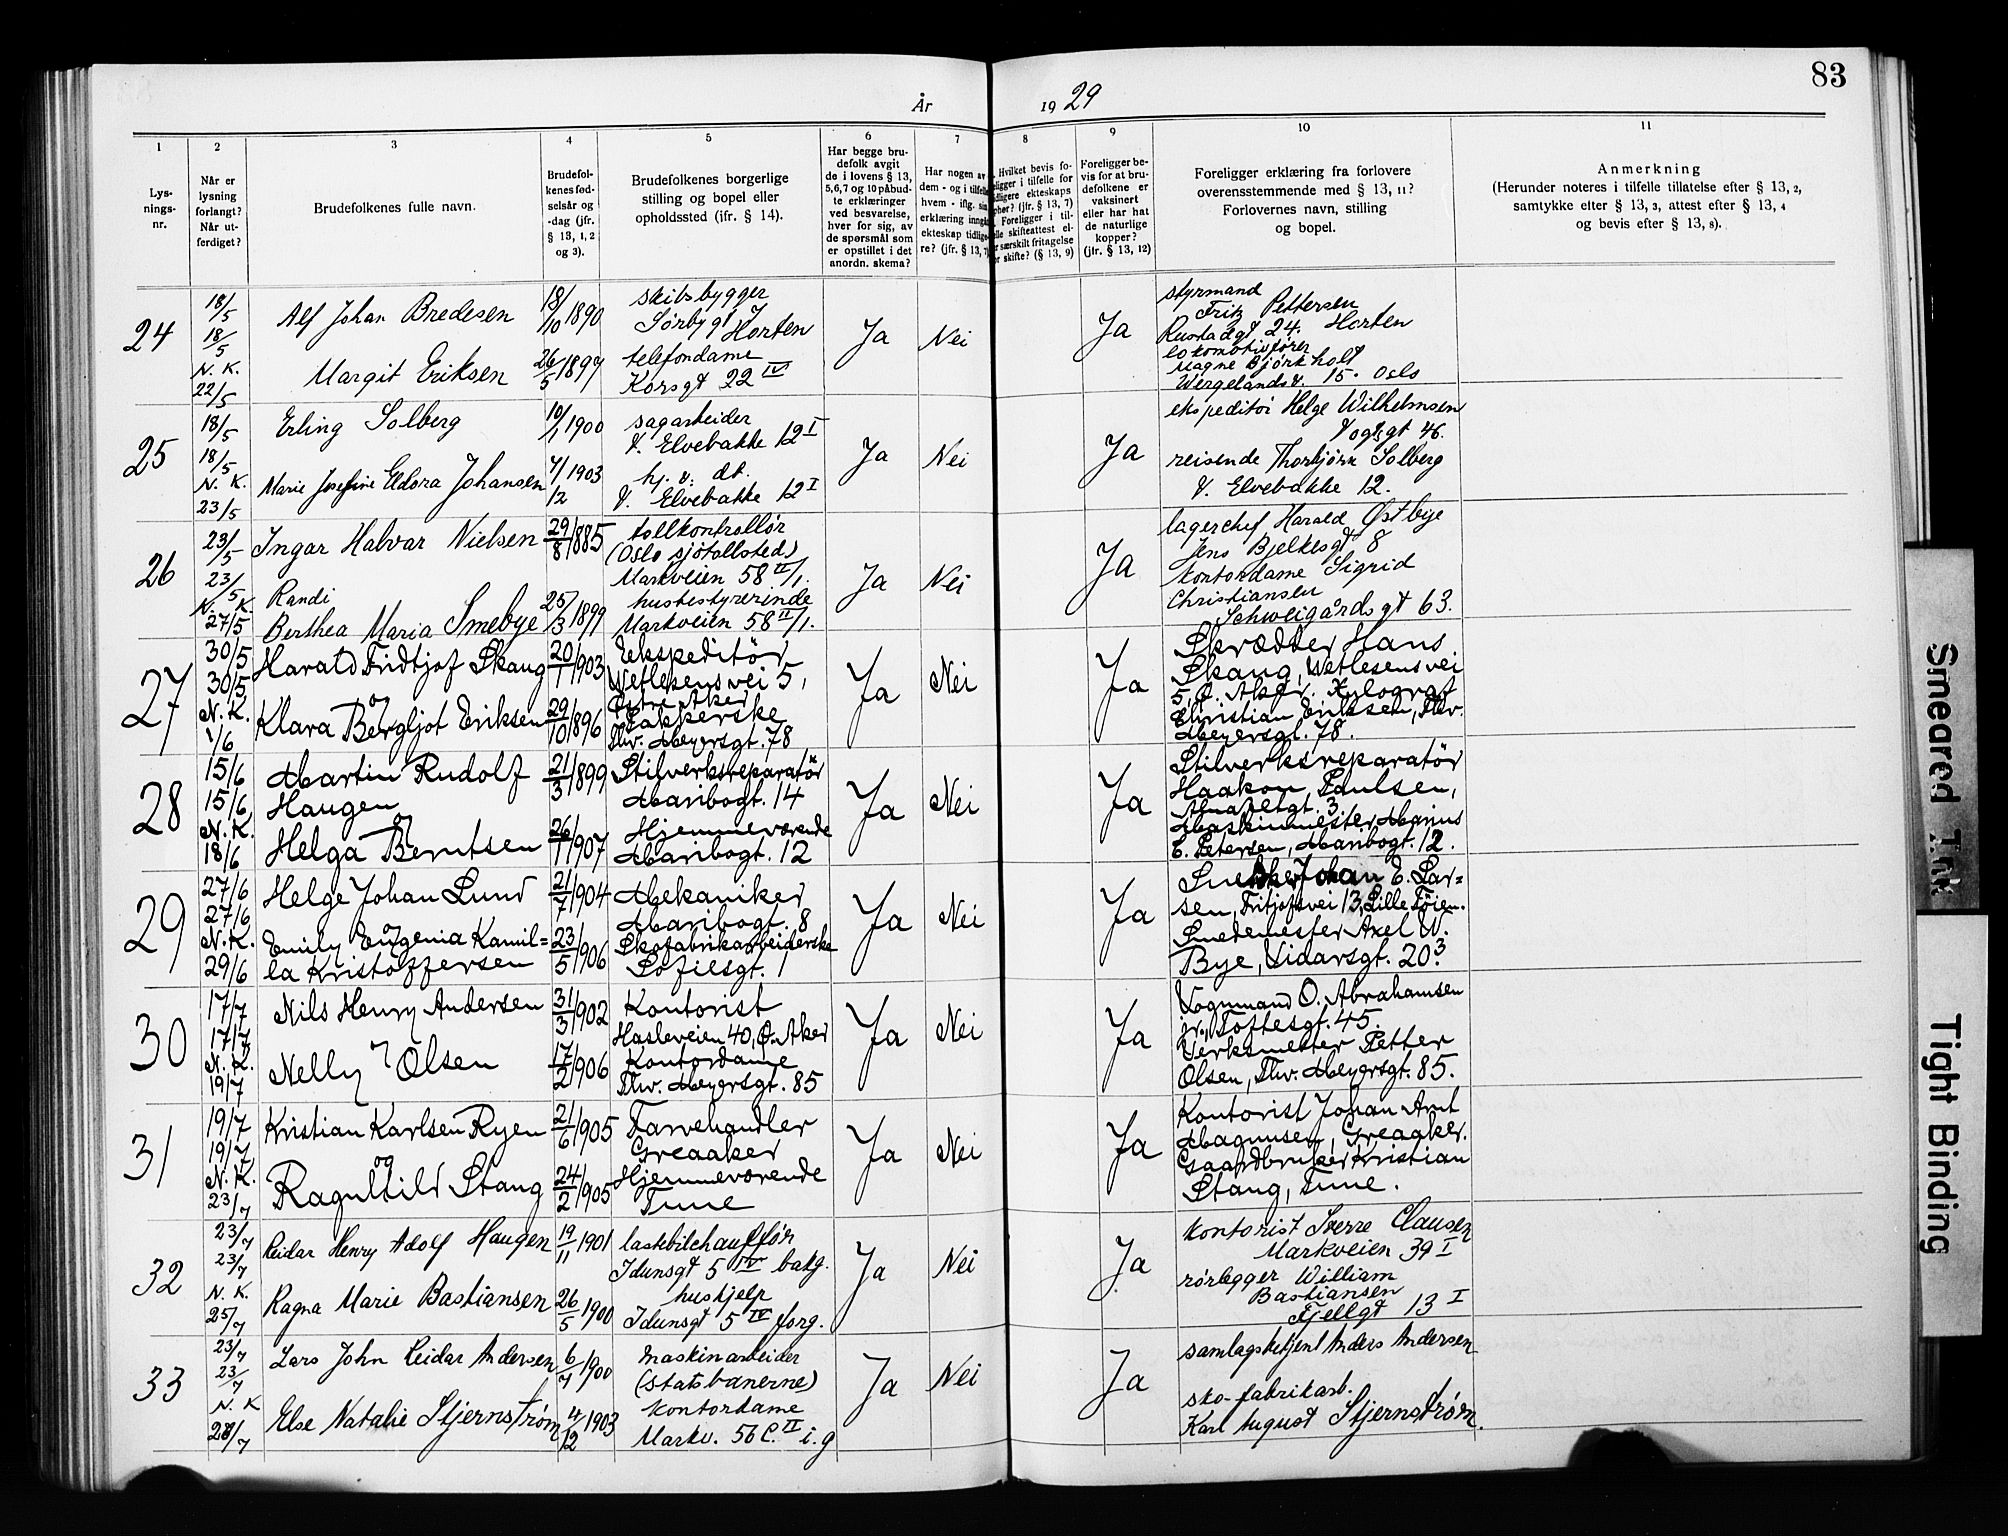 83
År 1929
1 2 3 4 5 6 7 8 9 10 11
Lysningsnr.
Når er lysning forlangt? Når utferdiget?
Brudefolkenes fulle navn.
Brudefolkenes fødselsår og -dag (jfr. § 13, 1, 2 og 3).
Brudefolkenes borgerlige stilling og bopel eller opholdssted (jfr. § 14).
Har begge brudefolk avgit de i lovens § 13, 5,6,7 og 10 påbudte erklæringer ved besvarelse, hver for sig, av de spørsmål som er opstillet i det anordn. skema?
Har nogen av dem - og i tilfelle hvem - iflg. sin erklæring inngått ekteskap tidligere? (jfr. § 13, 7)
Hvilket bevis foreligger i tilfelle for
Foreligger bevis for at brudefolkene er vaksinert eller har hat de naturlige kopper? (jfr. § 13, 12)
Foreligger erklæring fra forlovere overensstemmende med § 13, 11? Forlovernes navn, stilling og bopel.
Anmerkning
(Herunder noteres i tilfelle tillatelse efter § 13, 2, samtykke efter § 13, 3, attest efter § 13, 4 og bevis efter § 13, 8).
24
18/5
18/5
N. K.
22/5
Alf Johan Bredesen
18/10 1890
skibsbygger
Sørbygt Horten
Margit Eriksen
26/5 1897
telefondame
Korsgt 22 IV
Ja
Nei
Ja
styrmand
Fritz Pettersen
Rustadgt 24. Horten
lokomotivfører
Magne Bjørkholt
Wergelandsv. 15. Oslo
25
18/5
18/5
N. K.
23/5
Erling Solberg
10/1 1900
sagarbeider
V. Elvebakke 12 I
Marie Josefine Eldora Johansen
7/12 1903
hj. v. dt.
V. Elvebakke 12 I
Ja
Nei
Ja
ekspeditør Helge Wilhelmsen
Vogtsgt 46.
reisende Thorbjørn Solberg
V. Elvebakke 12.
26
23/5
23/5
N. K.
27/5
Ingar Halvar Nielsen
29/8 1885
tollkontrollør
(Oslo sjøtollsted)
Markveien 58 II/1.
Randi
Berthea Maria Smebye
25/3 1899
husbestyrerinde
Markveien 58 II/1.
Ja
Nei
Ja
lagerchef Harald Østbye
Jens Bjelkesgt 8
kontordame Sigrid
Christiansen
Schweigårdsgt 63.
27
30/5
30/5
N. K.
1/6
Harald Fridtjof Skaug
20/1 1903
Ekspeditör
Wetlesens vei 5,
Østre Aker
og
Klara Bergljot Eriksen
29/10 1896
Pakkerske
Thv. Meyersgt. 78
Ja
Nei
Ja
Skrædder Hans
Skaug, Wetlesens vei
5, Ø. Aker. Xylograf
Christian Eriksen, Thv.
Meyersgt. 78.
28
15/6
15/6
N. K.
18/6
Martin Rudolf
Haugen
21/3 1899
Stilverksreparatör
Maribogt. 14
og
Helga Berntsen
26/1 1907
Hjemmeværende
Maribogt. 12
Ja
Nei
Ja
Stilverksreparatör
Haakon Paulsen,
3.
Maskinmester Marius
E. Petersen, Maribogt. 12.
29
27/6
27/6
N. K.
29/6
Helge Johan Lund
21/7 1904
Mekaniker
Maribogt. 8
og
Emily Eugenia Kamil=
la Kristoffersen
23/5 1906
Skofabrikarbeiderske
Sofiesgt. 1
Ja
Nei
Ja
Snekker Johan E. Lar=
sen, Fritjofsvei 13, Lille Tøien.
Smedemester Axel W.
Bye, Vidarsgt. 20 3.
30
17/7
17/7
N. K.
19/7
Nils Henry Andersen
31/3 1902
Kontorist
Hasleveien 40, Ø. Aker
Nelly Olsen
17/2 1906
Kontordame
Thv. Meyersgt. 85
Ja
Nei
Ja
Vognmand O. Abrahamsen
jr., Toftesgt. 45.
Verksmester Petter
Olsen, Thv. Meyersgt. 85.
31
19/7
19/7
N. K.
23/7
Kristian Karlsen Ryen
21/6 1905
Farvehandler
Greaaker
og
Ragnhild Stang
24/2 1905
Hjemmeværende
Tune
Ja
Nei
Ja
Kontorist Johan Arnt
Magnusen, Greaaker.
Gaardbruker Kristian
Stang, Tune.
32
23/7
23/7
N. K.
25/7
Reidar Henry Adolf Haugen
19/11 1901
lastebilchaufför
Idunsgt 5 IV bakg.
Ragna Marie Bastiansen
26/5 1900
hushjelp
Idunsgt 5 IV forg.
Ja
Nei
Ja
kontorist Sverre Clausen
Markveien 39 I
rørlegger William
Bastiansen
Fjellgt 13 I
33
23/7
23/7
N. K
Lars John Reidar Andersen
6/7 1900
maskinarbeider
(statsbanerne)
Else Natalie Stjernstrøm
4/12 1903
kontordame
Markv. 56 C. II i. g
Ja
Nei
Ja
samlagsbetjent Anders Andersen
sko-fabrikarb.
Karl August Stjernstrøm.
Smeared Ink
Tight Binding